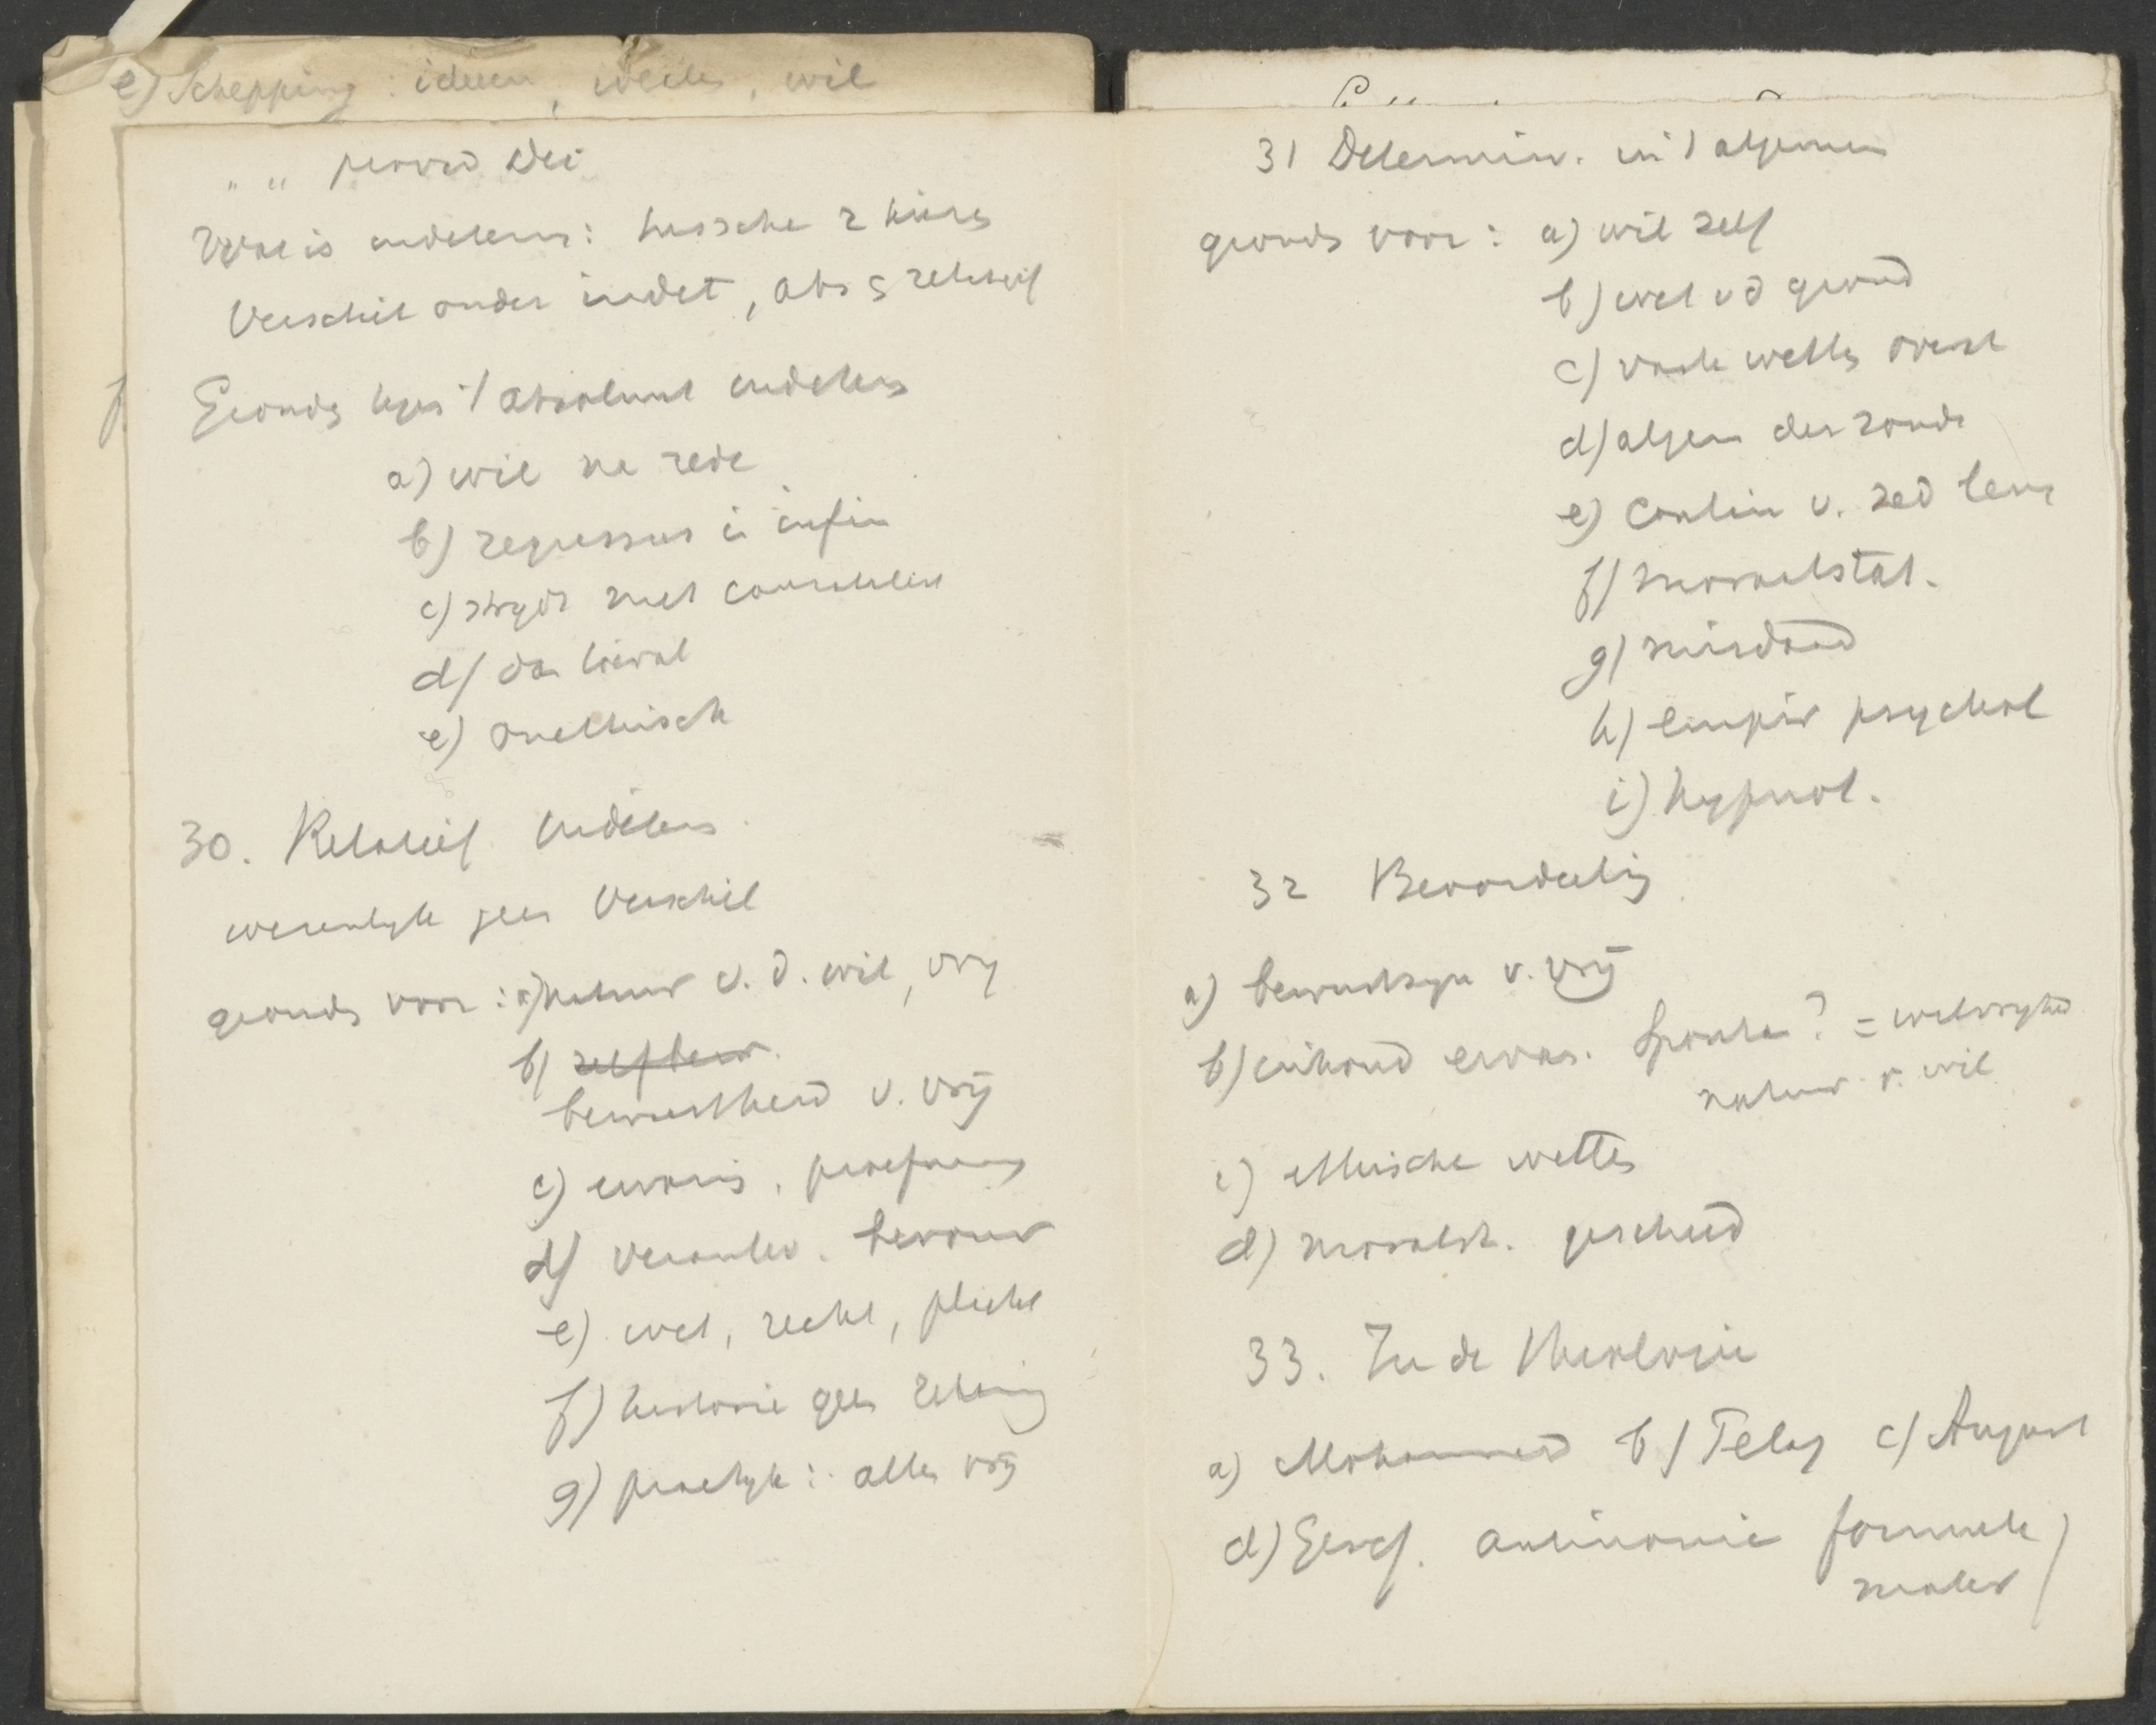 e) Schepping : ideeen, wetten, wil
" " provid Dei
Wat is indeterm : tussche 2 keuzes
Verschil onder indet, abs & relatief
Gronds tegen 't absoluut indeterm
a) wil na rede
b) regressus i infin
c) strydt met causaliteit
d) dan toeval
e) onethisch
30. Relatief Indeterm.
wezenlyk geen Verschil
gronds voor : a) natuur v. d. wil, vry
b) zelfbew.
bewustheid v. vrij
c) ervaris,
d) verantw. berouw
e) wet, recht, plicht
f) historie geen
g) praktyk : alles vrij
31 Determin. in 't algemeen
gronds voor : a) wil zelf
b) wet v d grond
c) vaste wetten overal
d) algem der zonde
e) Contin v. zed leve
f) moraalstat.
g) misdaad
h) empir psychol
i) hypnot.
32 Beoordeling
a) bewustzyn v. vrij
b) inhoud ervar. Sponta? = wilsvryheid
natuur v. wil
c) ethische wetten
d) moraalst. gescheid
33. In de theologie
a) Mohammed b) Pelag c) August
d) Geref. antinomie formeele
mater